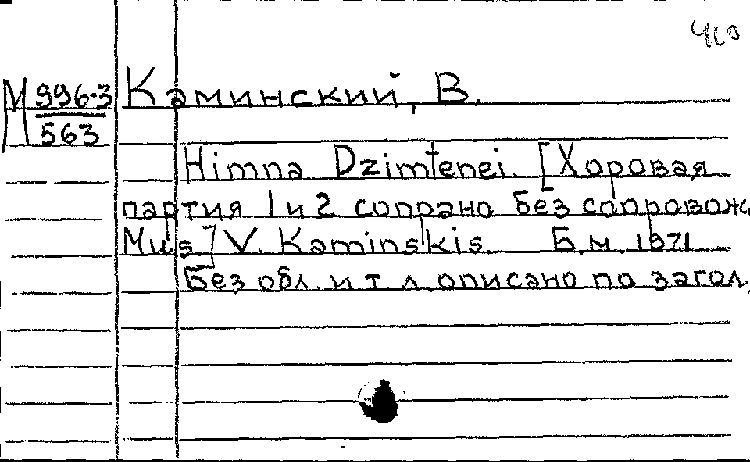 М 996-3 Каминский, В.
563
Himna Dzimtenei. [Хоровая
партия 1 и 2 сопрано без сопровож
Mus] V. Kaminskis. Б.м. 1971
Без обл. и т л описано по загол.